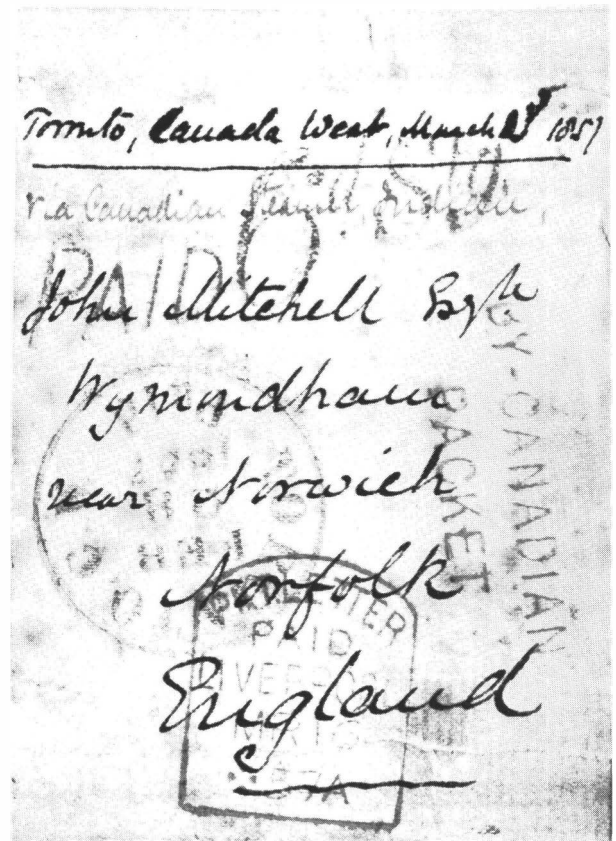 Toronto, Canada West, March 1857
via Canadian Steamer, Indian,
PAID
John Mitchell Esqre
Wymondham
near Norwich
Norfolk
England
BY-CANADIAN
PACKET
PKT. LETTER
PAID
LIVERPOOL
57A